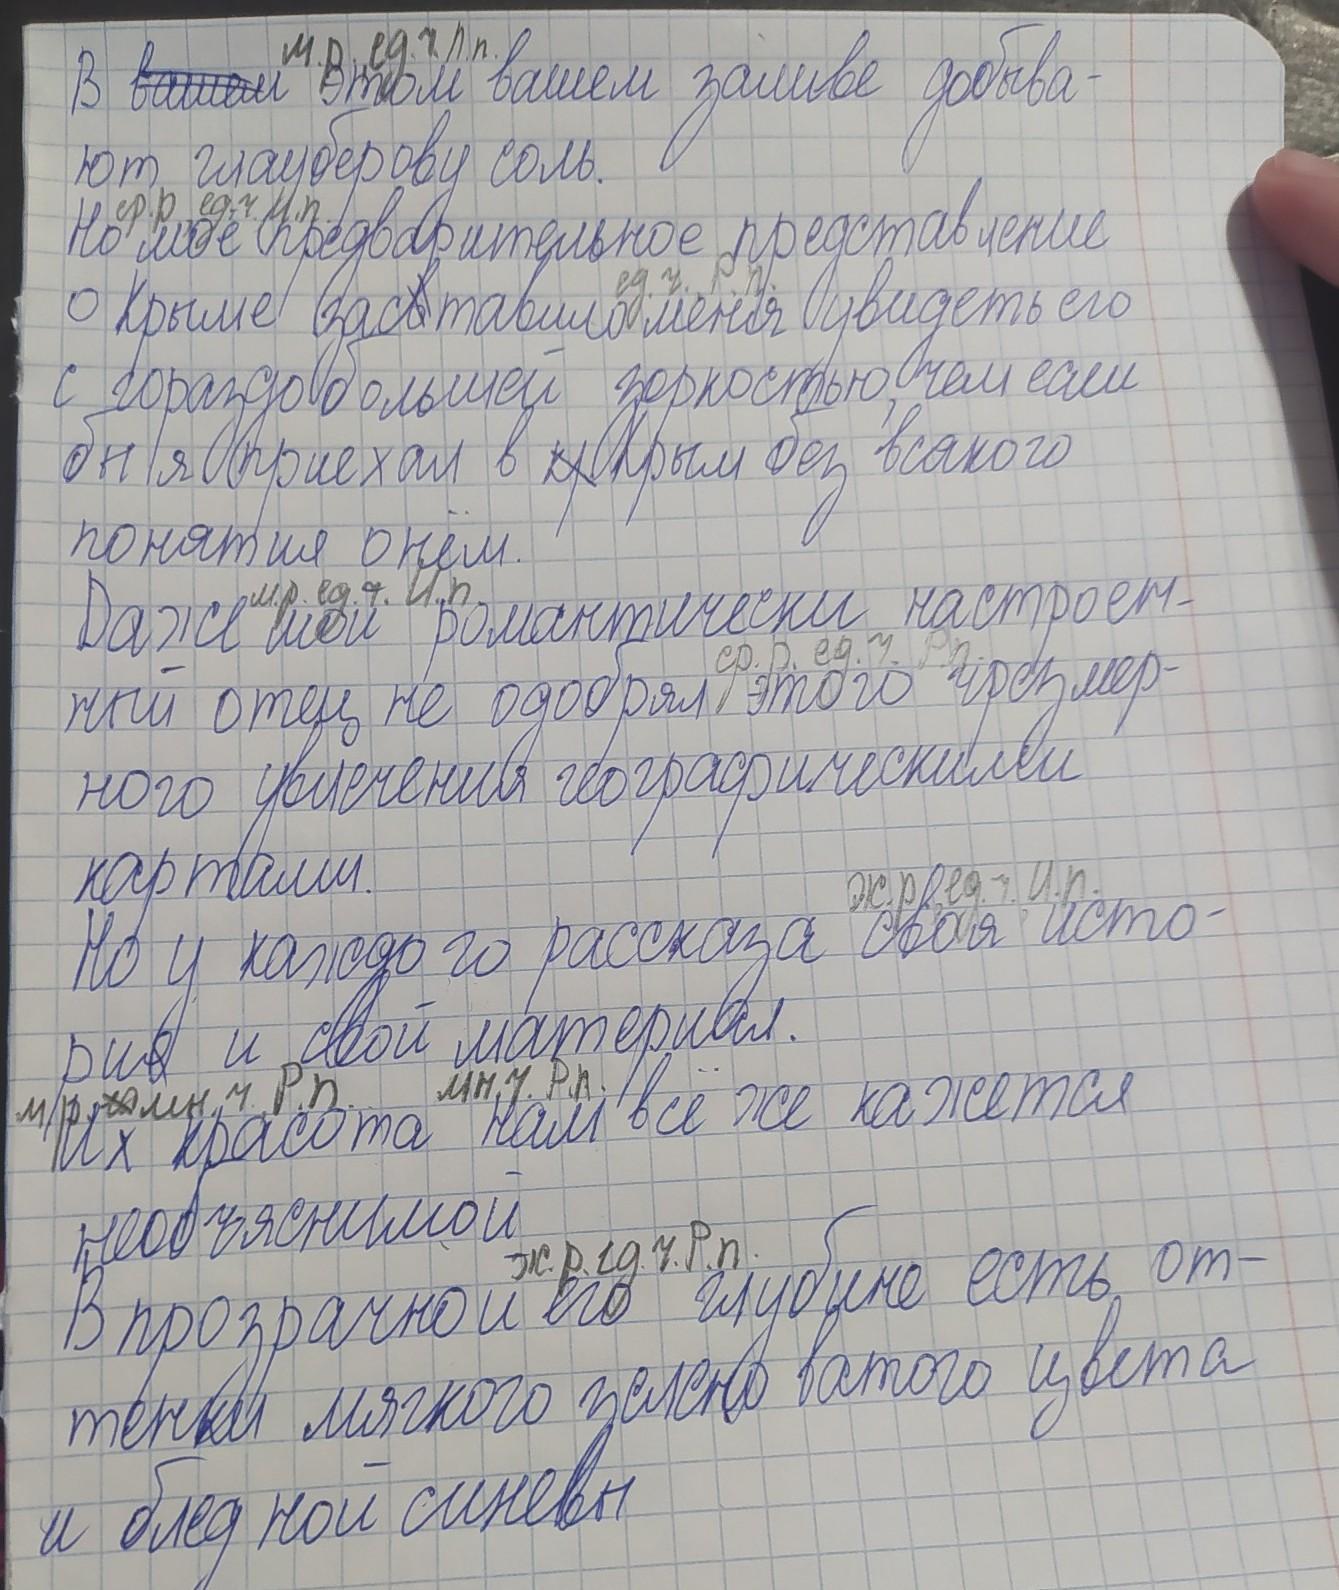 м.р. ед.ч. П.п.
В этом вашем заливе добыва-
ют глауберову соль.
ср.р. ед.ч. И.п.
Но моё предварительное представление
ед.ч. Р.п.
о Крыме заставило меня увидеть его
с гораздо большей зоркостью, чем если
бы я приехал в Крым без всякого
понятия о нём.
м.р. ед.ч. И.п.
Даже мой романтически настроен-
ср.р. ед.ч. Р.п.
ный отец не одобрял этого чрезмер-
ного увлечения географическими
картами.
ж.р. ед.ч. И.п.
Но у каждого рассказа своя исто-
рия и свой материал.
мн.ч. Р.п. мн.ч. Р.п.
Их красота нам всё же кажется
необъяснимой
ж.р. ед.ч. Р.п.
В прозрачной его глубине есть от-
тенки мягкого зеленоватого цвета
и бледной синевы